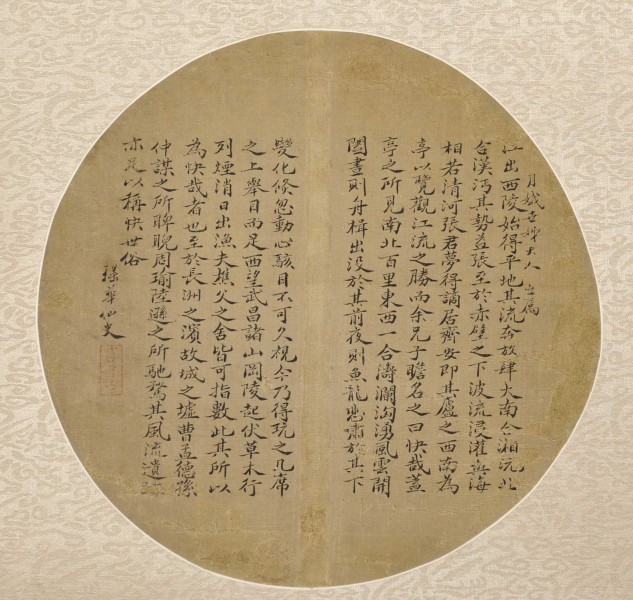 月娥 夫人
江出西陵始得平地其流奔放肆大南合湘沅北
合漢沔其勢益張至於赤壁之下波流浸灌與海
相若清河張君夢得謫居齊安即其廬之西南為
亭以覽觀江流之勝而余兄子瞻名之曰快哉蓋
亭之所見南北百里東西一合濤瀾洶湧風雲開
闔晝則舟楫出没於其前夜則魚龍悲嘯於其下
變化倏忽動心駭目不可久視今乃得玩之几席
之上舉目而足西望武昌諸山岡陵起伏草木行
列煙消日出漁夫樵父之舍皆可指數此其所以
為快哉者也至於長洲之濱故城之墟曹孟德孫
仲謀之所睥睨周瑜陸遜之所馳騖其風流遺跡
亦足以稱快世俗
華仙史